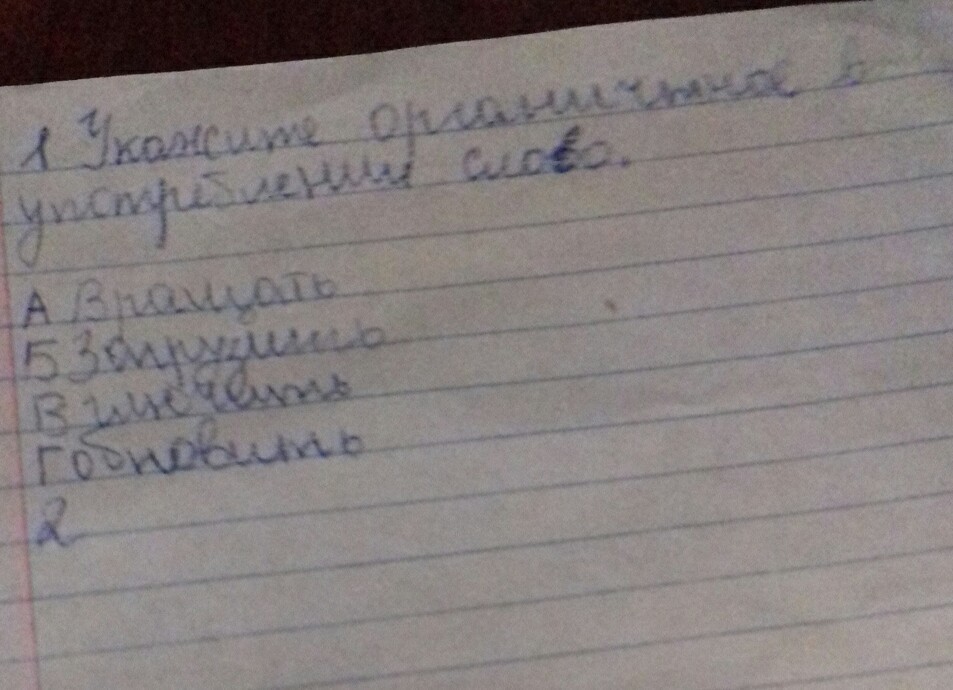 1 Укажите органичное в
употреблении слово.
А Вращать
Б Запрудить
В
Г обновить
2